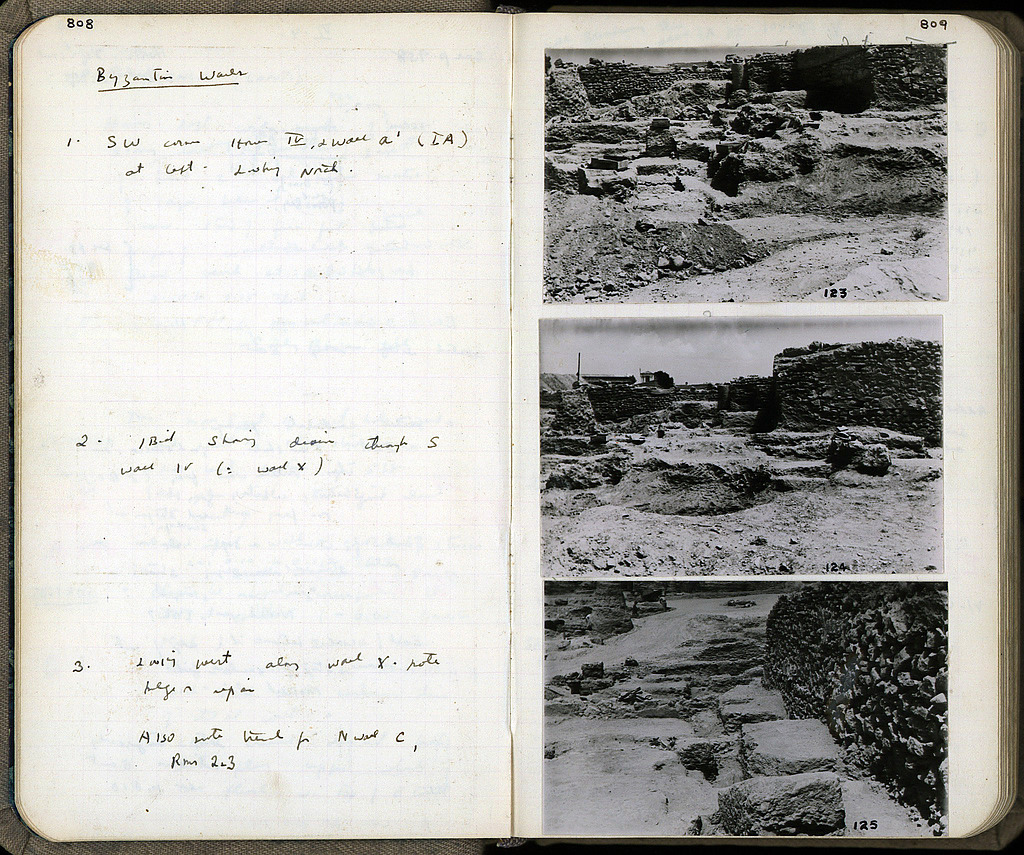 808
Byzantine Walls
1. SW corner House IV, & Wall a' (IA)
at left. Looking North.
2. Ibid showing drain through S
wall IV (= wall X)
3. Looking west along wall X. note
repair
Also note trench for N wall C,
Rms 2-3
809
123
124
125